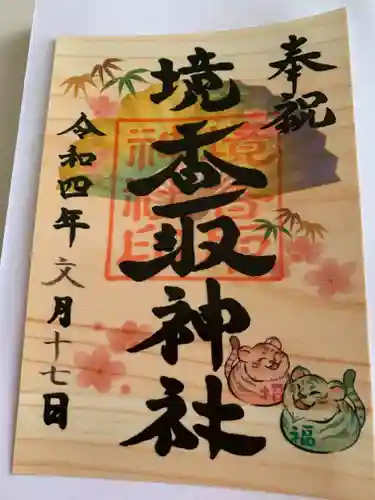 奉祝
境香取神社
令和四年文月十七日
境香取神社印
招
福